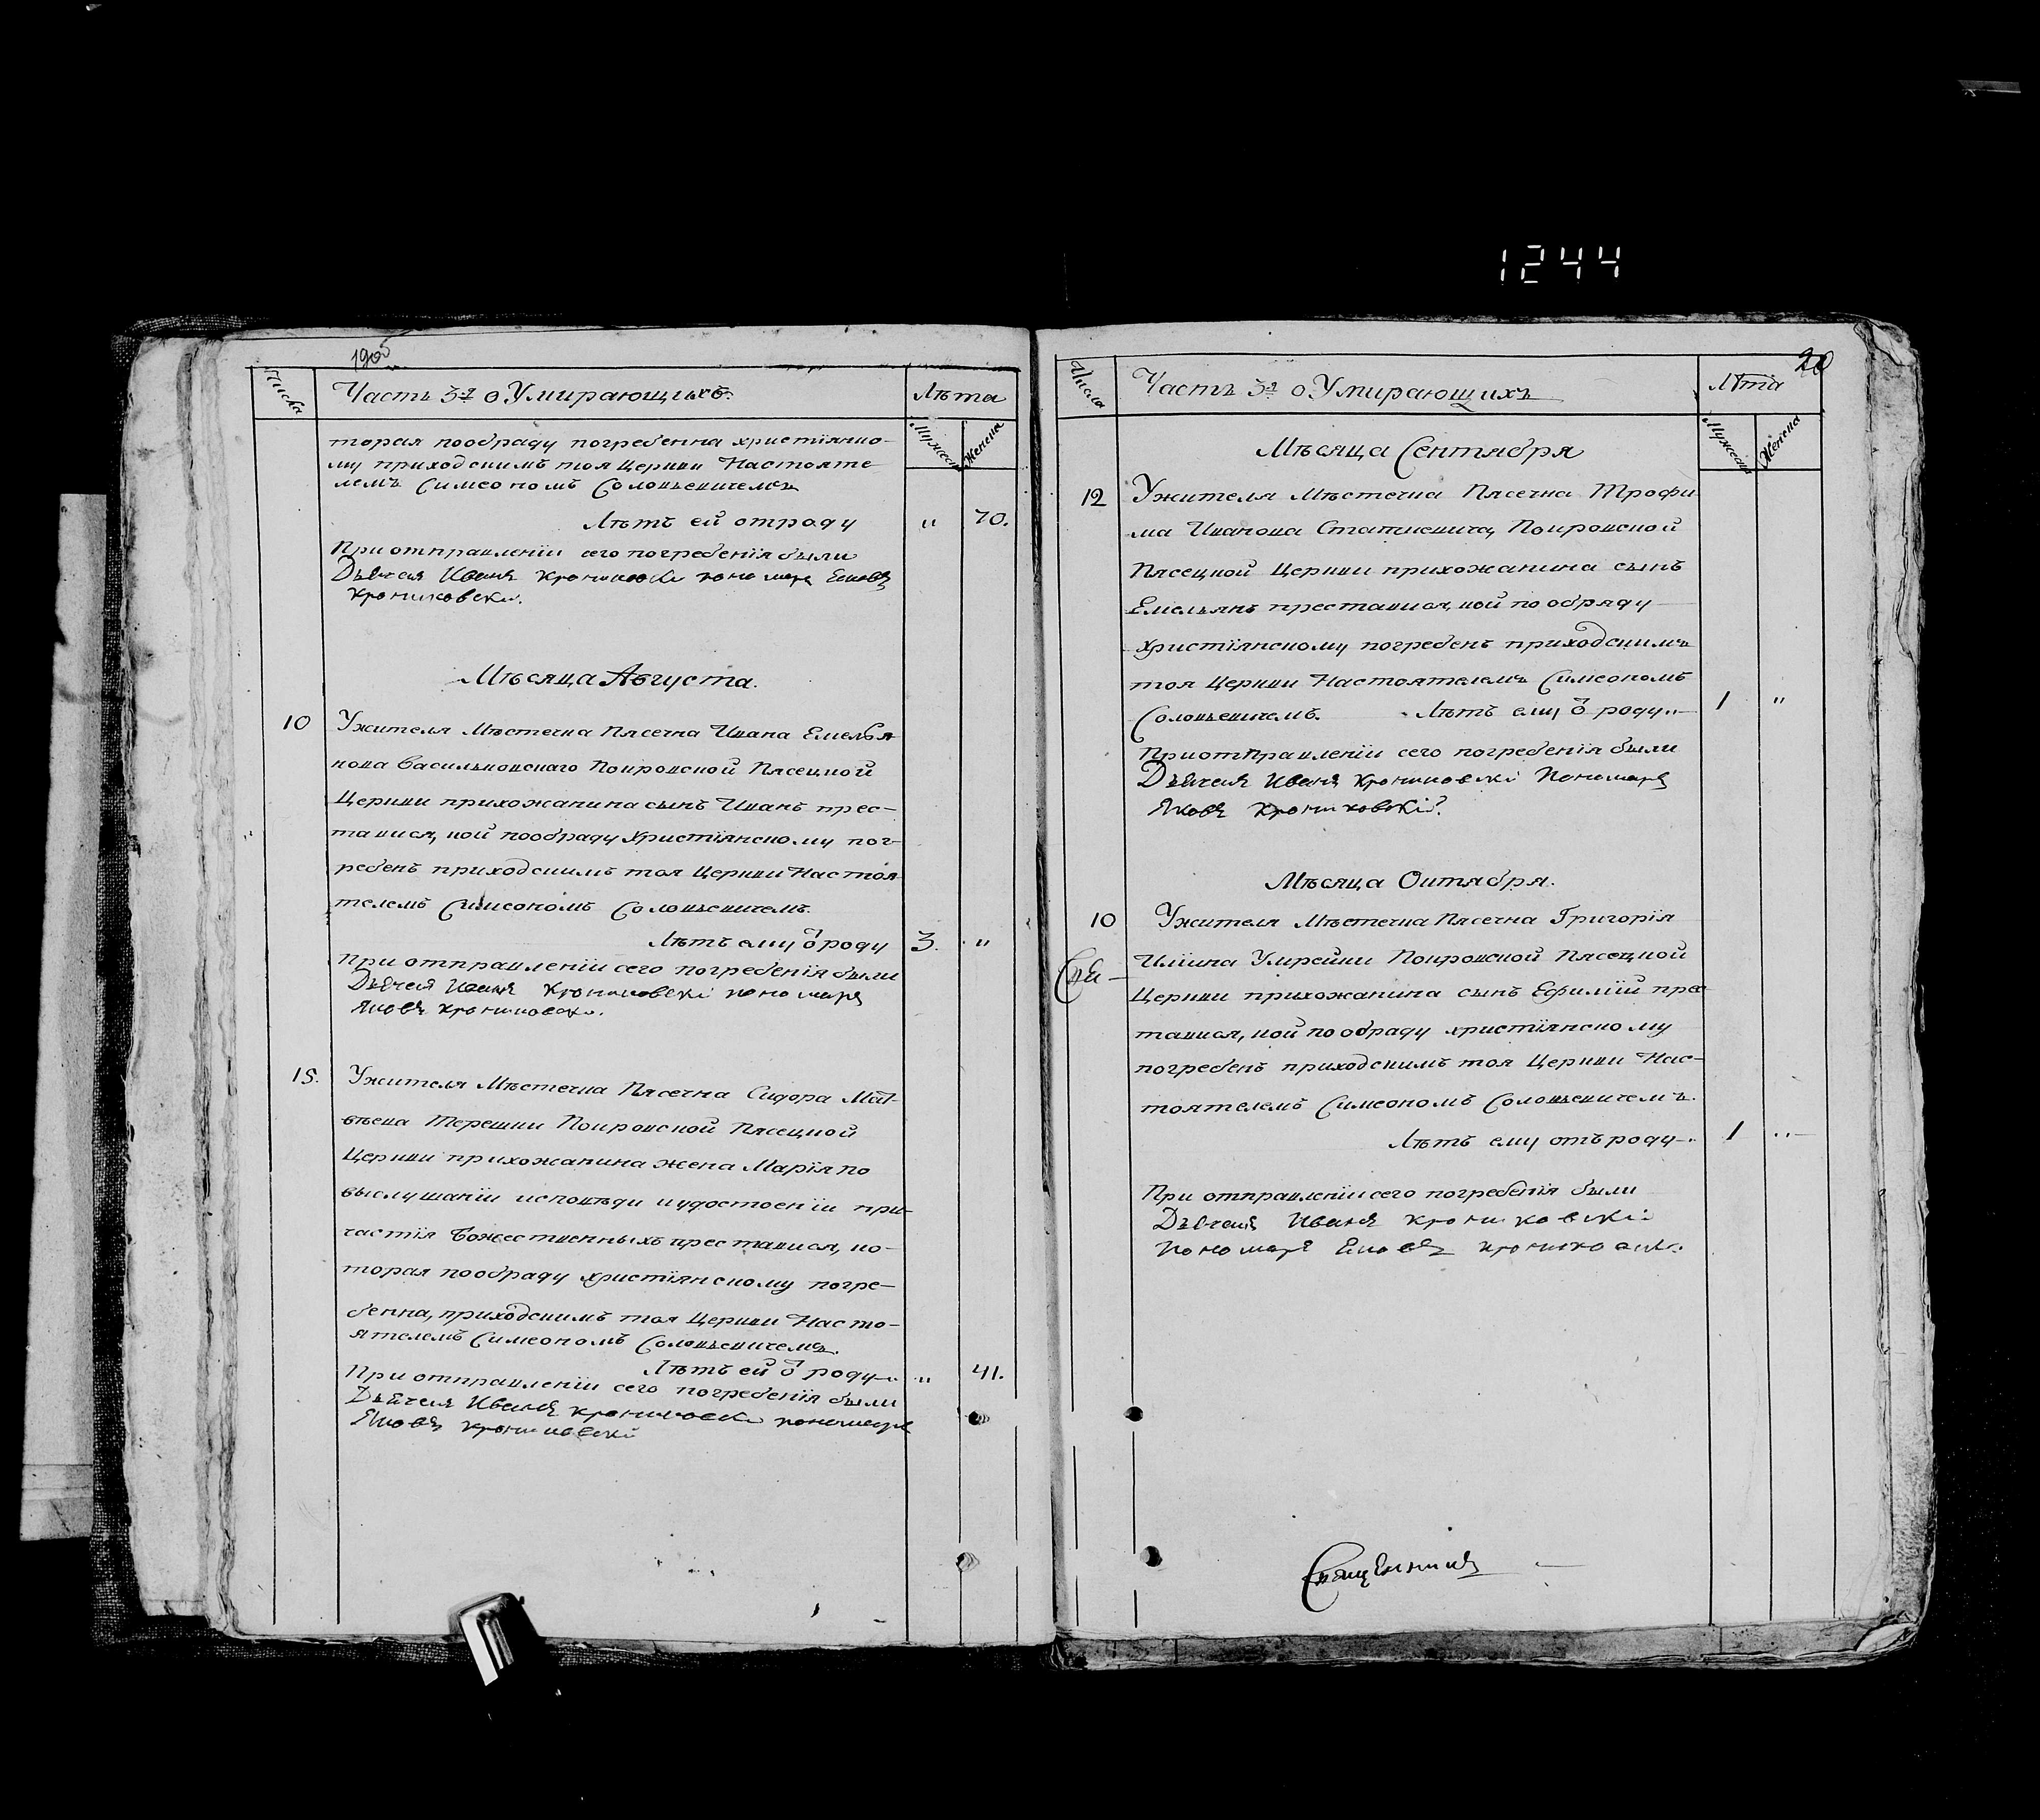 1244
190
Числа
Часть 3я о Умирающихъ.
Лѣта
Мужеска
Женска
торая пообряду погребенна христіянско-
му приходскимъ тоя Церкви Настояте-
лемъ Симеономъ Соловьевичемъ
Лѣтъ ей отроду " 70.
При отправленіи сего погребенія были
Дьячокъ Иванъ Крониковски пономарь Яковъ
Крониковски.
Мѣсяца Августа.
10 Ужителя Мѣстечка Пясечна Ивана Емелья-
нова Васильковскаго Покровской Пясецкой
Церкви прихожанина сынъ Иванъ прес-
тавися, кой пообряду Христіянскому пог-
ребенъ приходскимъ тоя Церкви Настоя-
телемъ Симеономъ Соловьевичемъ.
Лѣтъ ему ѿ роду 3. "
При отправленіи сего погребенія были
Дьячокъ Иванъ Крониковскі пономарь
Яковъ Крониковски.
15. Ужителя Мѣстечка Пясечна Сидора Мат-
вѣева Терешки Покровской Пясецкой
Церкви прихожанина жена Марія по
выслушаніи исповѣди и удостоеніи при-
частія Божественныхъ преставися, ко-
торая пообряду христіянскому погре-
бенна, приходскимъ тоя Церкви Насто-
ятелемъ Симеономъ Соловьевичемъ.
Лѣтъ ей ѿ роду " 41.
При отправленіи сего погребенія были
Дьячокъ Иванъ Крониковски пономарь
Яковъ Крониковскі
20
Числа
Часть 3я о Умирающихъ
Лѣта
Мужеска
Женска
Мѣсяца Сентября
12 Ужителя Мѣстечка Пясечна Трофи-
ма Иванова Статкевича, Покровской
Пясецкой Церкви прихожанина сынъ
Емельянъ преставися, кой по обряду
Христіянскому погребенъ приходскимъ
тоя Церкви Настоятелемъ Симеономъ
Соловьевичемъ. Лѣтъ ему ѿ роду 1 "
При отправленіи сего погребенія были
Дьячокъ Иванъ Крониковскі Пономарь
Яковъ Крониковскій
Мѣсяца Октября.
10 Ужителя Мѣстечка Пясечна Григорія
Илїина Умрейки Покровской Пясецкой
Церкви прихожанина сынъ Ефимїй прес-
тавися, кой по обряду христіянскому
погребенъ приходскимъ тоя Церкви Нас-
тоятелемъ Симеономъ Соловьевичемъ.
Лѣтъ ему отъ роду 1 "
При отправленіи сего погребенія были
Дьячокъ Иванъ Крониковскі
Пономарь Яковъ Крониковски.
Священникъ